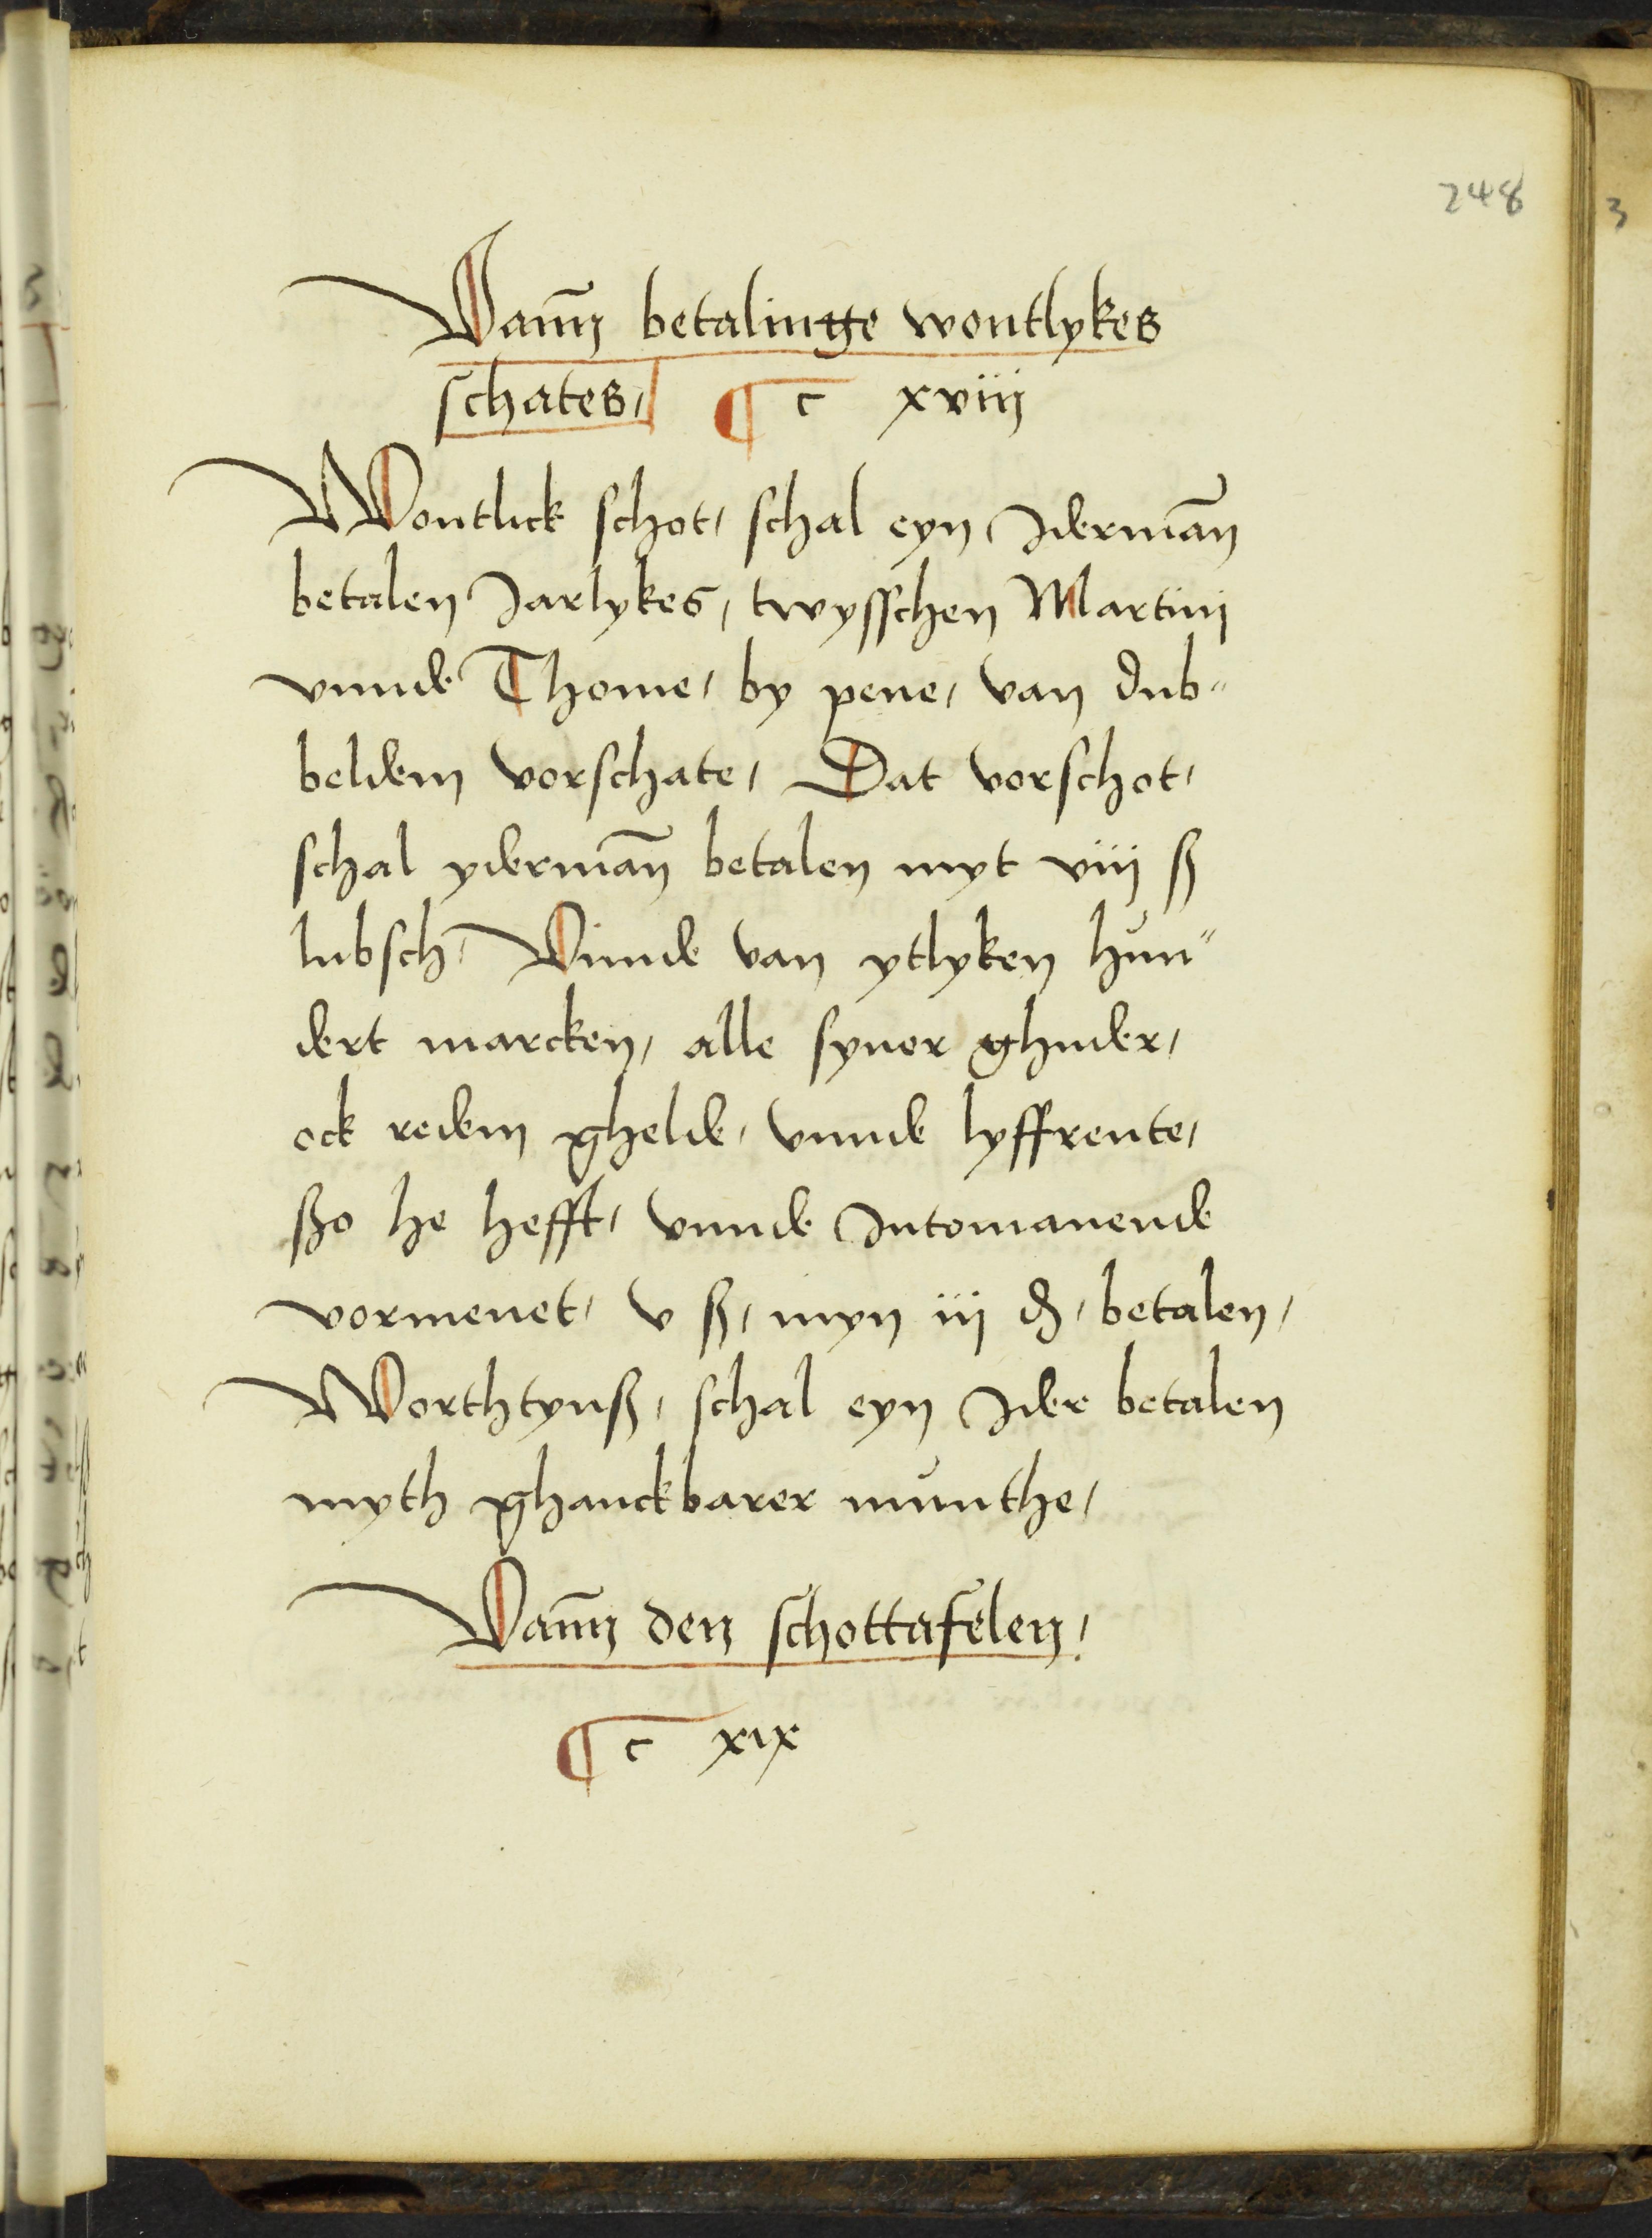 248
3
Vann̄ betalinge wontlykes
schates / ¶ c xviij
Wontlick schot / schal eyn Iderman̄
betalen Jarlykes / twysschen Martinj
vnnde Thome / by pene / van dub⸗
beldem vorschate / Dat vorschot /
schal yderman̄ betalen myt viij ß
lubsch / Vnnde van ytlyken hun⸗
dert marcken / alle syner ghuder /
ock redem ghelde / vnnde lyffrente /
ßo he hefft / vnnde Intomanende
vormenet / v ß / myn iij ₰ / betalen /
Worthtynß / schal eyn Ider betalen
myth ghanckbarer munthe /
Vann̄ den schottafelen /
¶ c xix